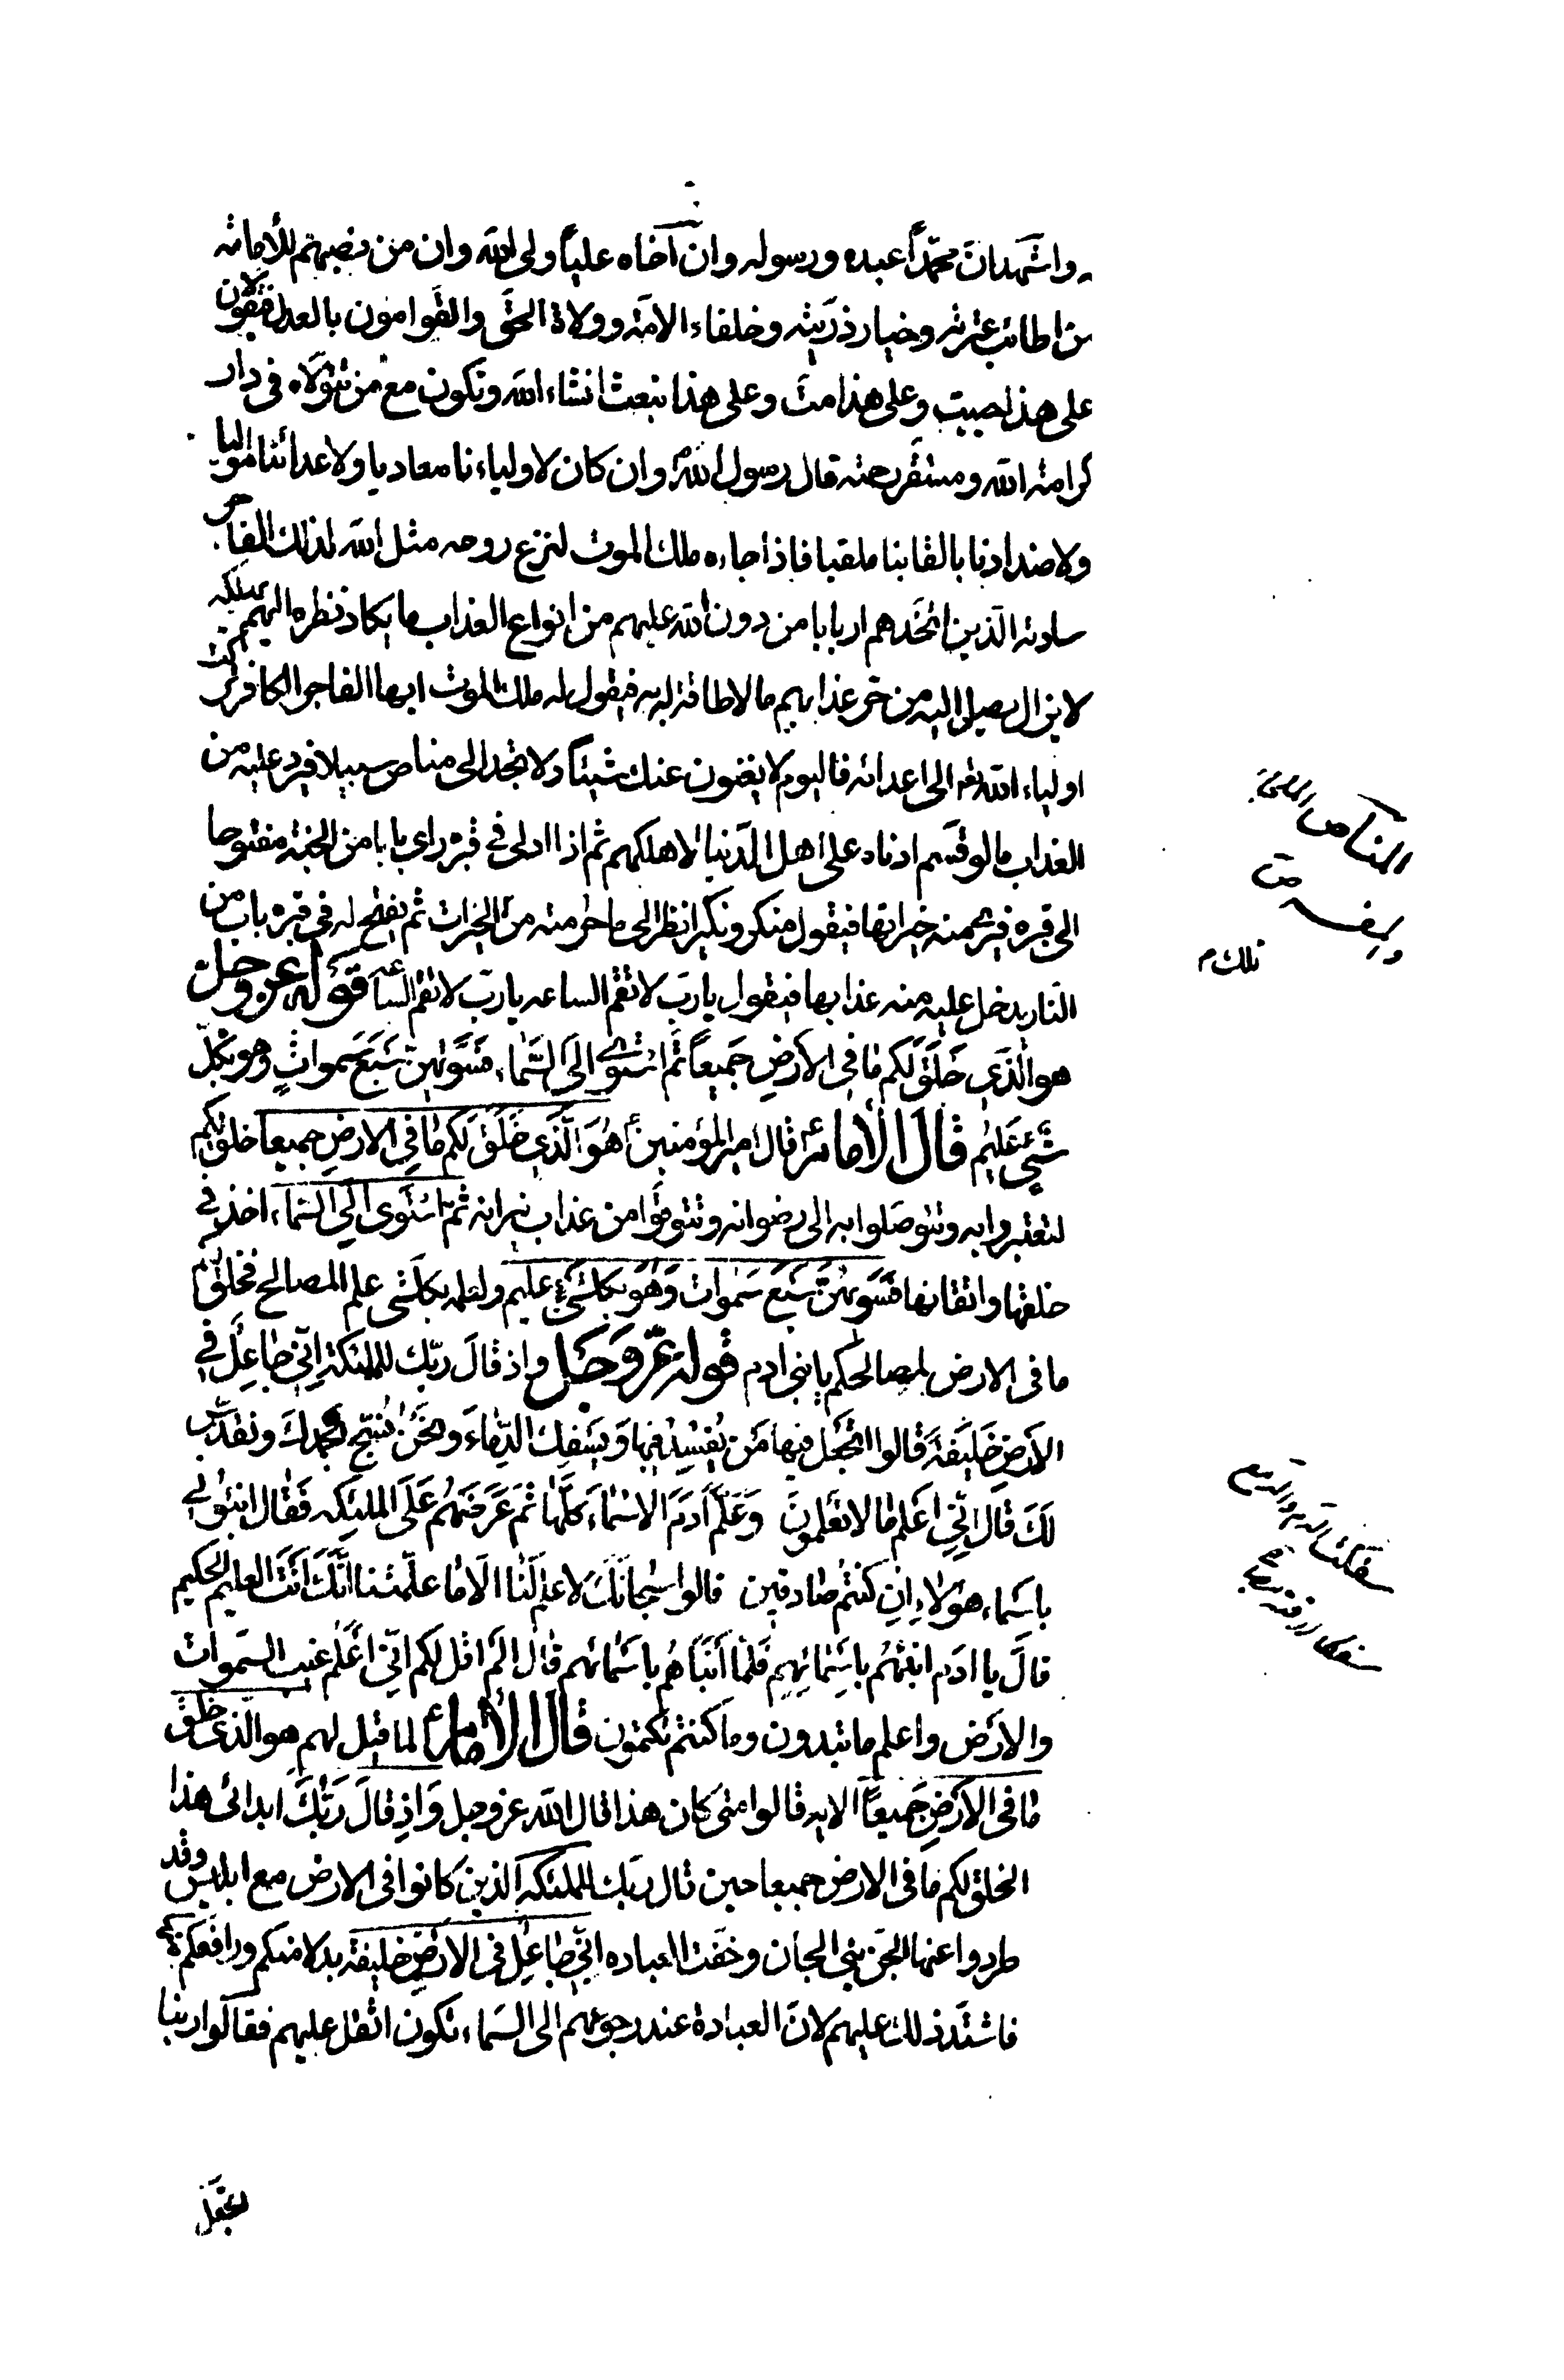 واشهد ان محمّداً عبده ورسوله وان آخاه علياً ولى الله وان من نصبهم للأمامة
من اطائب عترته وخيار ذريّته وخلفاء الامّة وولاة الحقّ والقوامون بالعدل فيقولان
على هذا حييت وعلى هذا متّ وعلى هذا تبعث انشاء الله وتكون مع من تتولاه فى دار
كرامة الله ومستقر رحمته قال رسول الله وان كان لاولياءنا معاديا ولاعدائنا مواليا
ولاضدادنا بالقابنا ملقبا فاذا جاءه ملك الموت لنزع روحه مثل الله لذلك الفاجر
سادته الذين اتخذهم اربابا من دون الله عليهم من انواع العذاب ما يكاد نظره اليهم يهلكه
لا يزال يصل اليه من حر عذابهم ما لا طاقة له به فيقول له ملك الموت ايها الفاجر الكافر تركت
اولياء الله الى اعدائه فاليوم لا يغنون عنك شيئا ولا تجد الى مناص سبيلا فيرد عليه من
العذاب ما لو قسم ادناه على اهل الدّنيا لاهلكهم ثم اذا ادلى فى قبره راى بابا من الجنة مفتوحا
الى قبره فيرى منه خيراتها فيقول منكر ونكير انظر الى ما حرمته من الخيرات ثم يفتح له فى قبره باب من
النار يدخل عليه منه عذابها فيقول يا ربّ لا تقم الساعه يا ربّ لا تقم الساعه قوله عز وجل
هو الَّذى خَلَقَ لَكم مٰا فى الاَرضِ جَميعاً ثُمَّ استوىٰ الى السَّماء فَسَوّٰيهنّ سَبعَ سَمٰواتٍ وهو بكلّ
شىءٍ عَليم قال الأمام قال امير المؤمنين هُوَ الَّذى خَلَقَ لَكم مٰا فى الارضِ جميعا خلق لكم
لتعتبروا به وتتوصلوا به الى رضوانه وتتوقوا من عذاب نيرانه ثمّ استَوى الى السّماء اخذ فى
خلقها واتقانها فَسَوّٰيهُنّ سَبعَ سَمٰوات وَهُوَ بكل شىءٍ عليم ولعلمه بكل شى علم المصالح فخلق لكم
ما فى الارض لمصالحكم يا بنى ادم قوله عزّ وجَل واذ قالَ ربّك للملئكة اِنّى جٰاعِلٌ فى
الاَرضِ خَليفَةً قالوا اتجعَل فيها مَن يُفسِدُ فيها وَيَسفِك الدّمٰاءَ وَنحنُ نُسبّح بحمدِكَ ونقدّس
لَكَ قالَ انّى اعَلم مٰا لا تعَلمون وَعَلَّمَ آدَمَ الاسمٰاءَ كلّهٰا ثمَ عَرَضَهُم عَلَى الملئِكه فَقٰالَ انبئونى
باسَماء هؤلاءِ اِن كنتُم صٰادقين قالوا سُبحانَكَ لا علمَ لَنٰا الّا مٰا علّمتنا اِنَّكَ اَنتَ العليم الحكيم
قالَ يا ادَم انبئهُم باسمٰائِهِم فَلمّا اَنبَأهُم باسَمٰائهم قٰالَ اَلَم اقل لكم انّى اعَلم غيب السّموات
والاَرض واعلم ما تبدون وما كنتم تكتمون قال الأمام لما قيل لهم هو الّذى خلق لكم
مٰا فى الاَرضِ جَميعاً الايه قالوا متى كان هذا قال الله عز وجل وَاِذ قالَ رَبّكَ ابدائى هذا
الخلق لكم مٰا فى الارض جميعا حين قال ربّك للملئكه الذين كانوا فى الارض مع ابليس وقد
طردوا عنها الجن بنى الجان وخفّت العباده انّى جٰاعِل فى الاَرضِ خليفة بدلا منكم ورافعكم منها
فاشتدّ ذلك عليهم لانّ العبادة عند رجوعهم الى السّماء تكون اثقل عليهم فقالوا ربنا
المناص الملجاء
تلك م
سفكت الدم والدمع
اتجعل